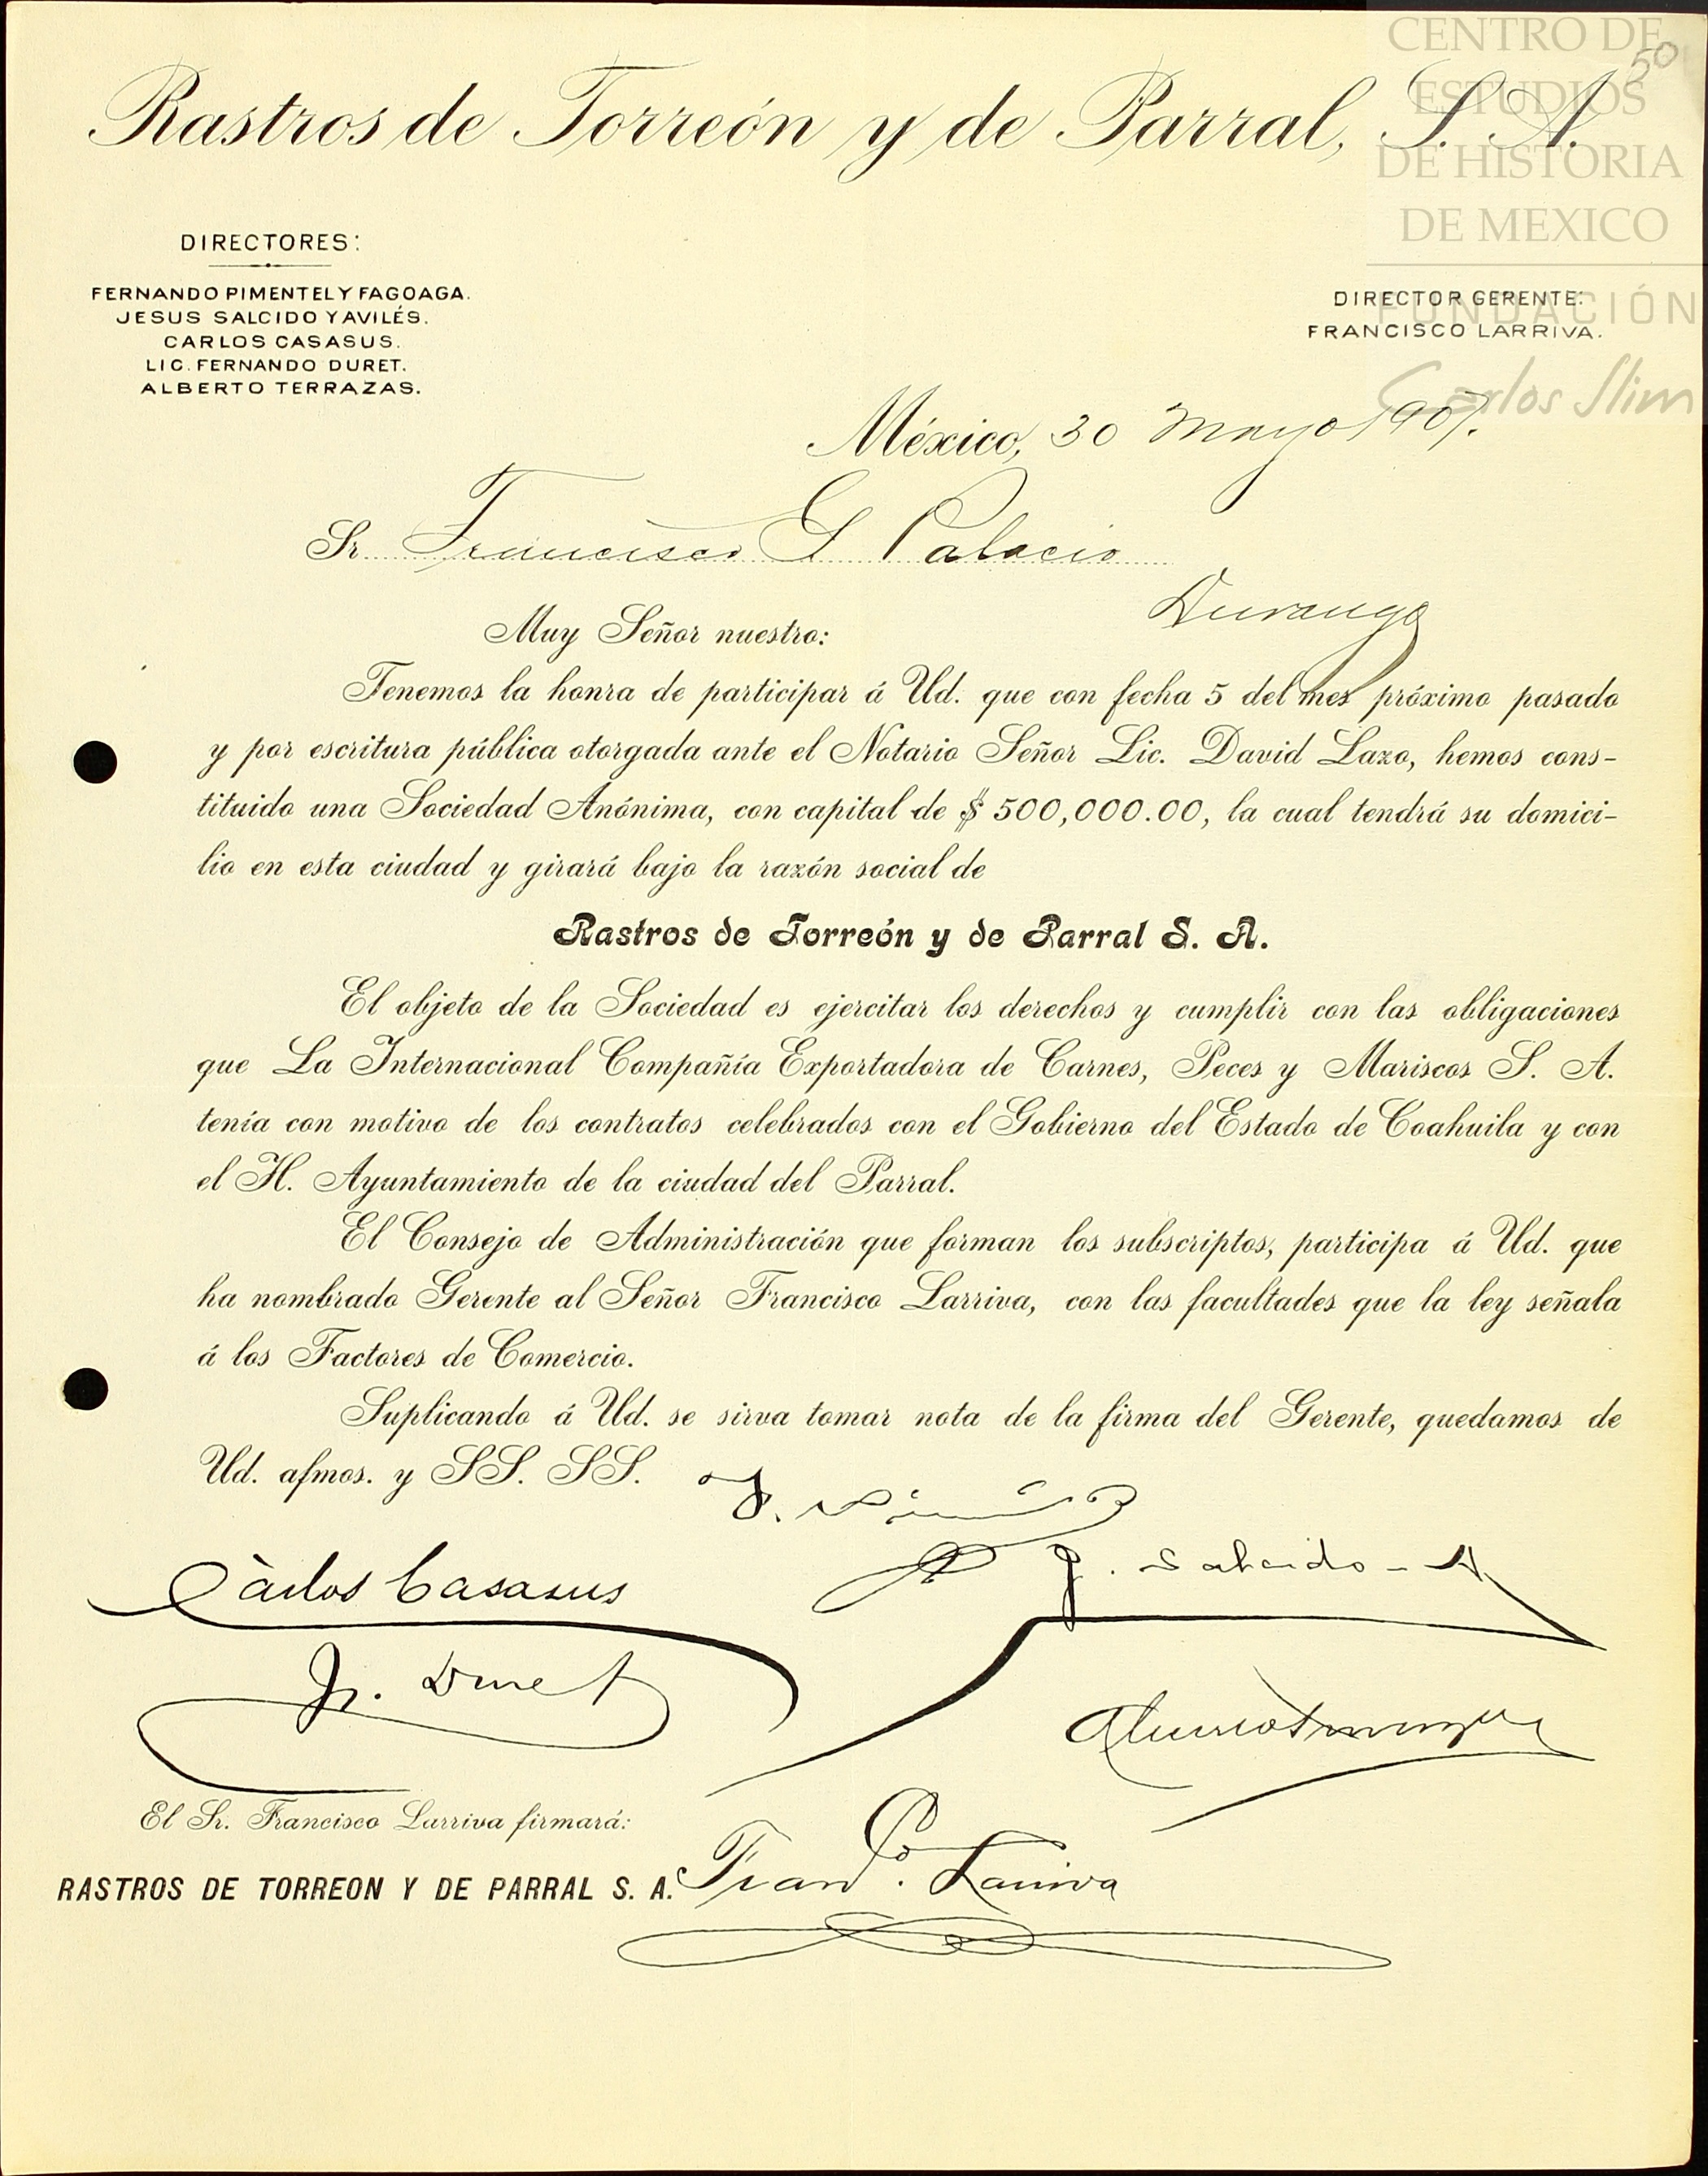 CENTRO DE
ESTUDIOS
DE HISTORIA
DE MEXICO
FUNDACIÓN
Carlos Slim
50
Rastros de Torreón y de Parral, S. A.
DIRECTORES:
FERNANDO PIMENTEL Y FAGOAGA.
JESUS SALCIDO Y AVILÉS.
CARLOS CASASUS.
LIC. FERNANDO DURET.
ALBERTO TERRAZAS.
DIRECTOR GERENTE:
FRANCISCO LARRIVA.
México, 30 Mayo 1907.
Sr. Francisco G Palacio
Durango
Muy Señor nuestro:
Tenemos la honra de participar á Ud. que con fecha 5 del mes próximo pasado
y por escritura pública otorgada ante el Notario Señor Lic. David Lazo, hemos cons-
tituido una Sociedad Anónima, con capital de $ 500,000.00, la cual tendrá su domici-
lio en esta ciudad y girará bajo la razón social de
Rastros de Torreón y de Parral S. A.
El objeto de la Sociedad es ejercitar los derechos y cumplir con las obligaciones
que La Internacional Compañía Exportadora de Carnes, Peces y Mariscos S. A.
tenía con motivo de los contratos celebrados con el Gobierno del Estado de Coahuila y con
el H. Ayuntamiento de la ciudad del Parral.
El Consejo de Administración que forman los subscriptos, participa á Ud. que
ha nombrado Gerente al Señor Francisco Larriva, con las facultades que la ley señala
á los Factores de Comercio.
Suplicando á Ud. se sirva tomar nota de la firma del Gerente, quedamos de
Ud. afmos. y SS. SS.
Carlos Casasus
J. Salcido-A
F. Duret
El Sr. Francisco Larriva firmará:
RASTROS DE TORREON Y DE PARRAL S. A.
Franco. Larriva